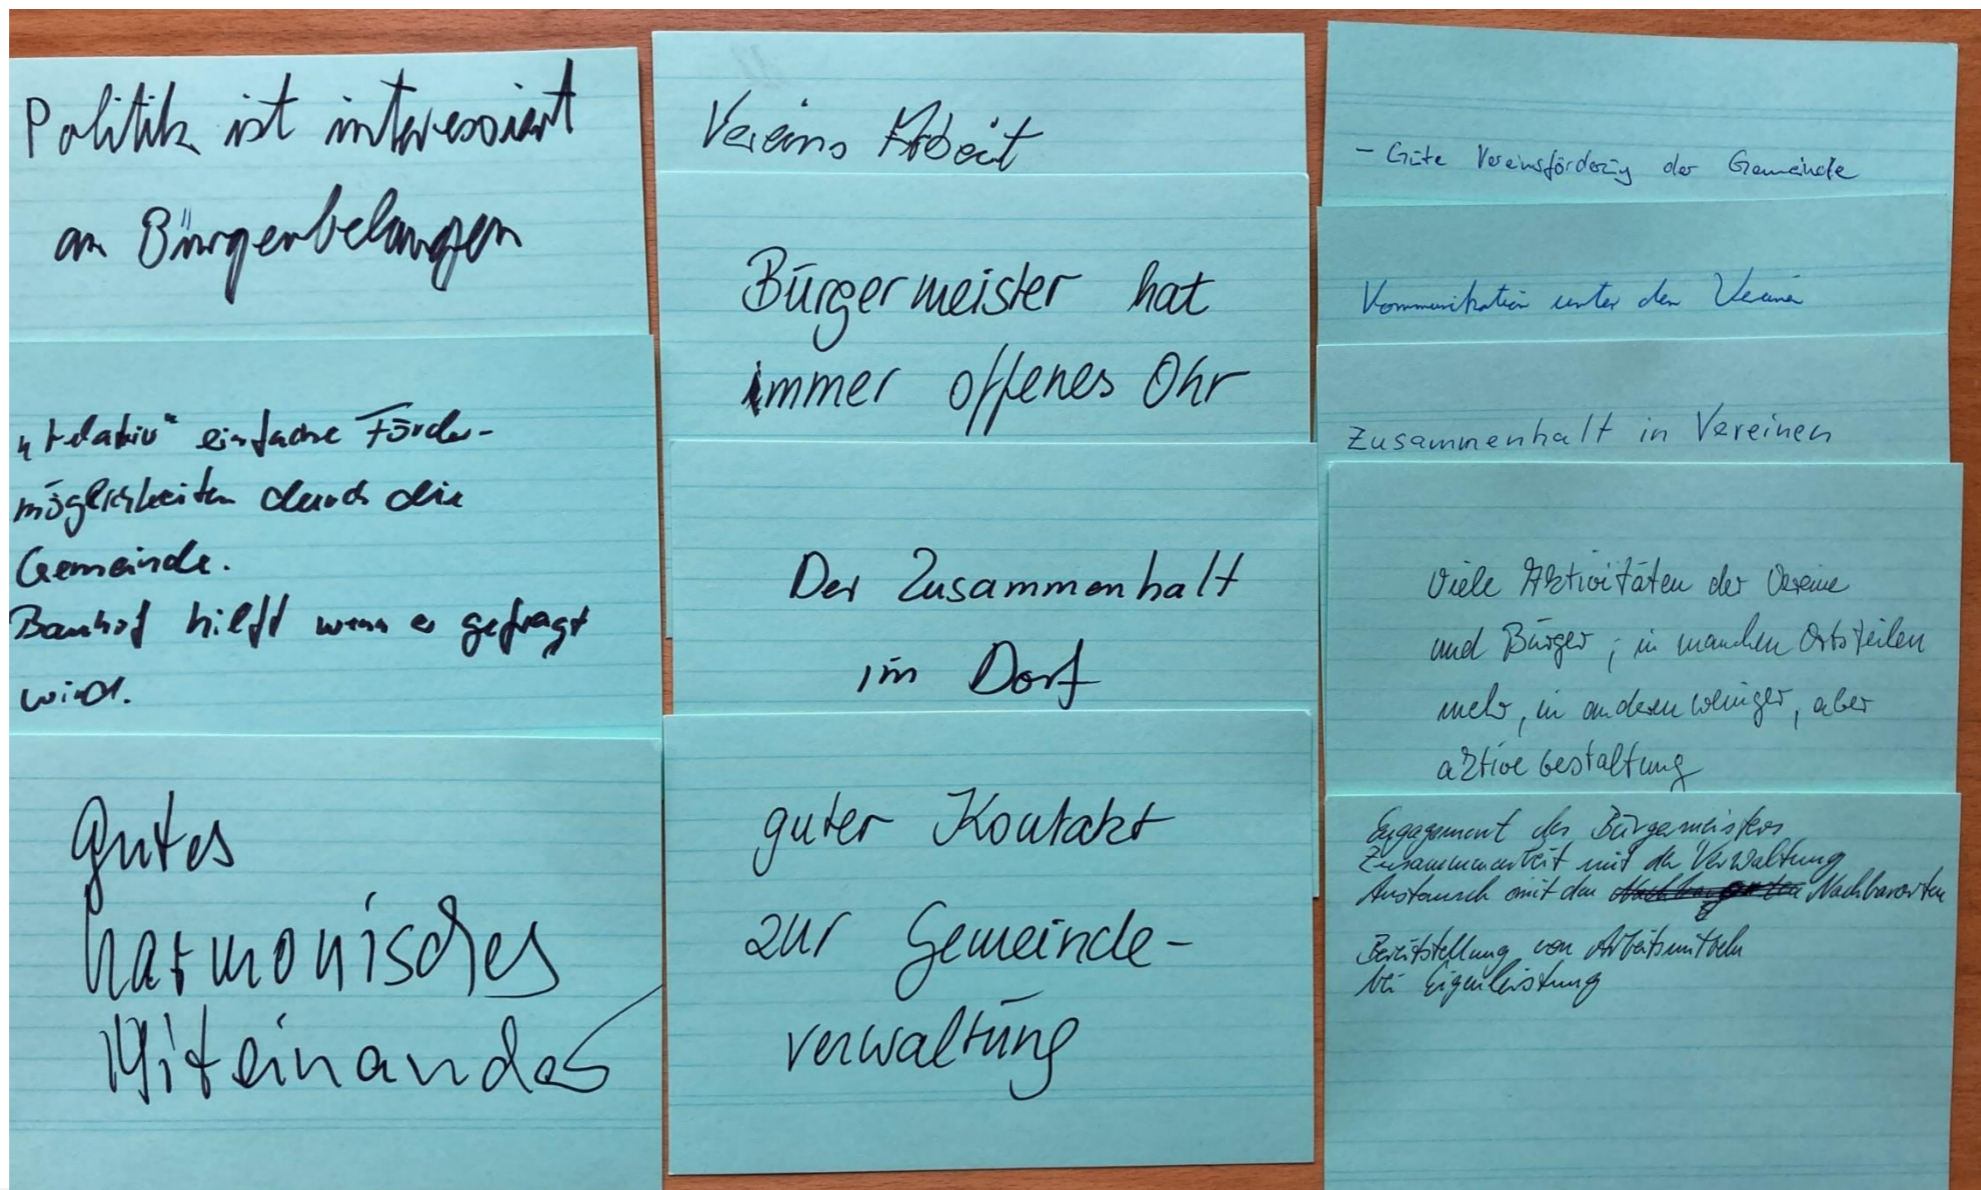 Politik ist interessiert
an Bürgerbelangen
"relativ" einfache Förder-
möglichkeiten durch die
Gemeinde.
Bauhof hilft wenn er gefragt
wird.
gutes
harmonisches
Miteinander
Vereins Arbeit
Bürgermeister hat
immer offenes Ohr
Der Zusammenhalt
im Dorf
guter Kontakt
zur Gemeinde-
verwaltung
- Gute Vereinsförderung der Gemeinde
Kommunikation unter den Vereinen
Zusammenhalt in Vereinen
Viele Aktivitäten der Vereine
und Bürger; in manchen Ortsteilen
mehr, in anderen weniger, aber
aktive Gestaltung
Engagement des Bürgermeisters
Zusammenarbeit mit der Verwaltung
Austausch mit den Nachbarorten
Bereitstellung von Arbeitsmitteln
bei Eigenleistung